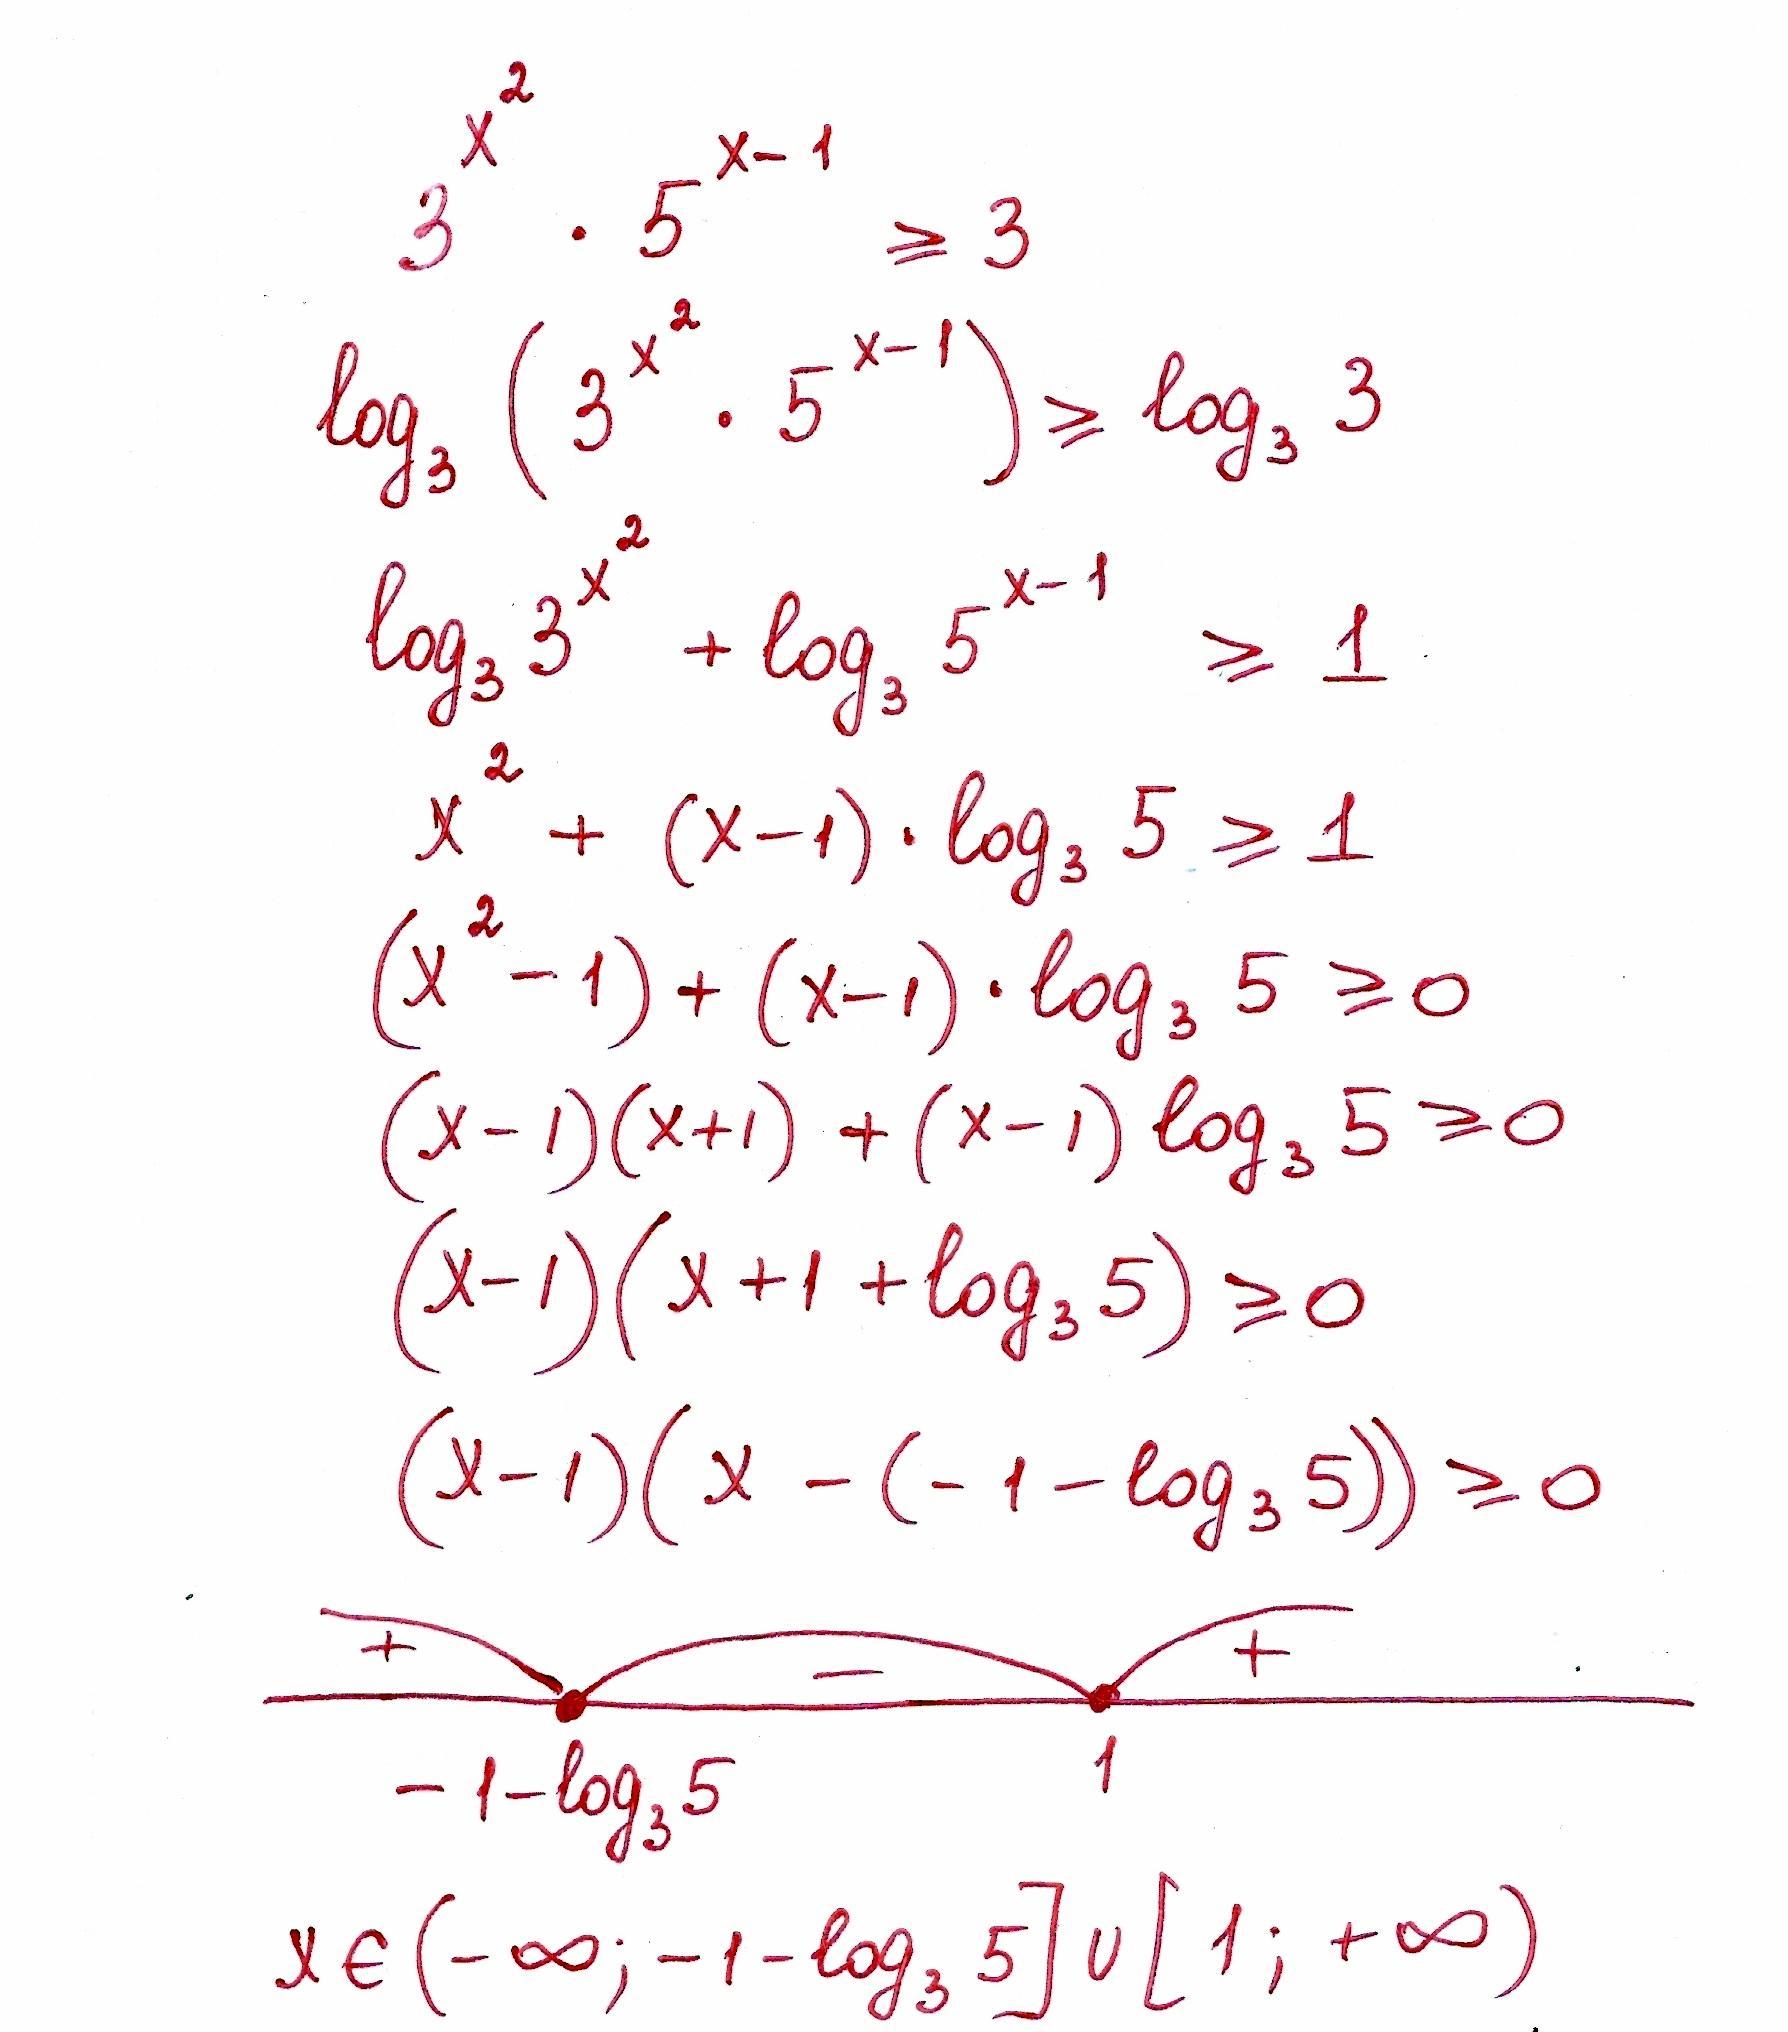 3^{x^2} · 5^{x-1} ≥ 3
log₃ (3^{x^2} · 5^{x-1}) ≥ log₃ 3
log₃ 3^{x^2} + log₃ 5^{x-1} ≥ 1
x² + (x-1) · log₃ 5 ≥ 1
(x² - 1) + (x-1) · log₃ 5 ≥ 0
(x-1)(x+1) + (x-1) log₃ 5 ≥ 0
(x-1)(x+1+log₃ 5) ≥ 0
(x-1)(x-(-1-log₃ 5)) ≥ 0
+ − +
-1-log₃ 5 1
x∈(-∞; -1-log₃ 5]∪[1; +∞)